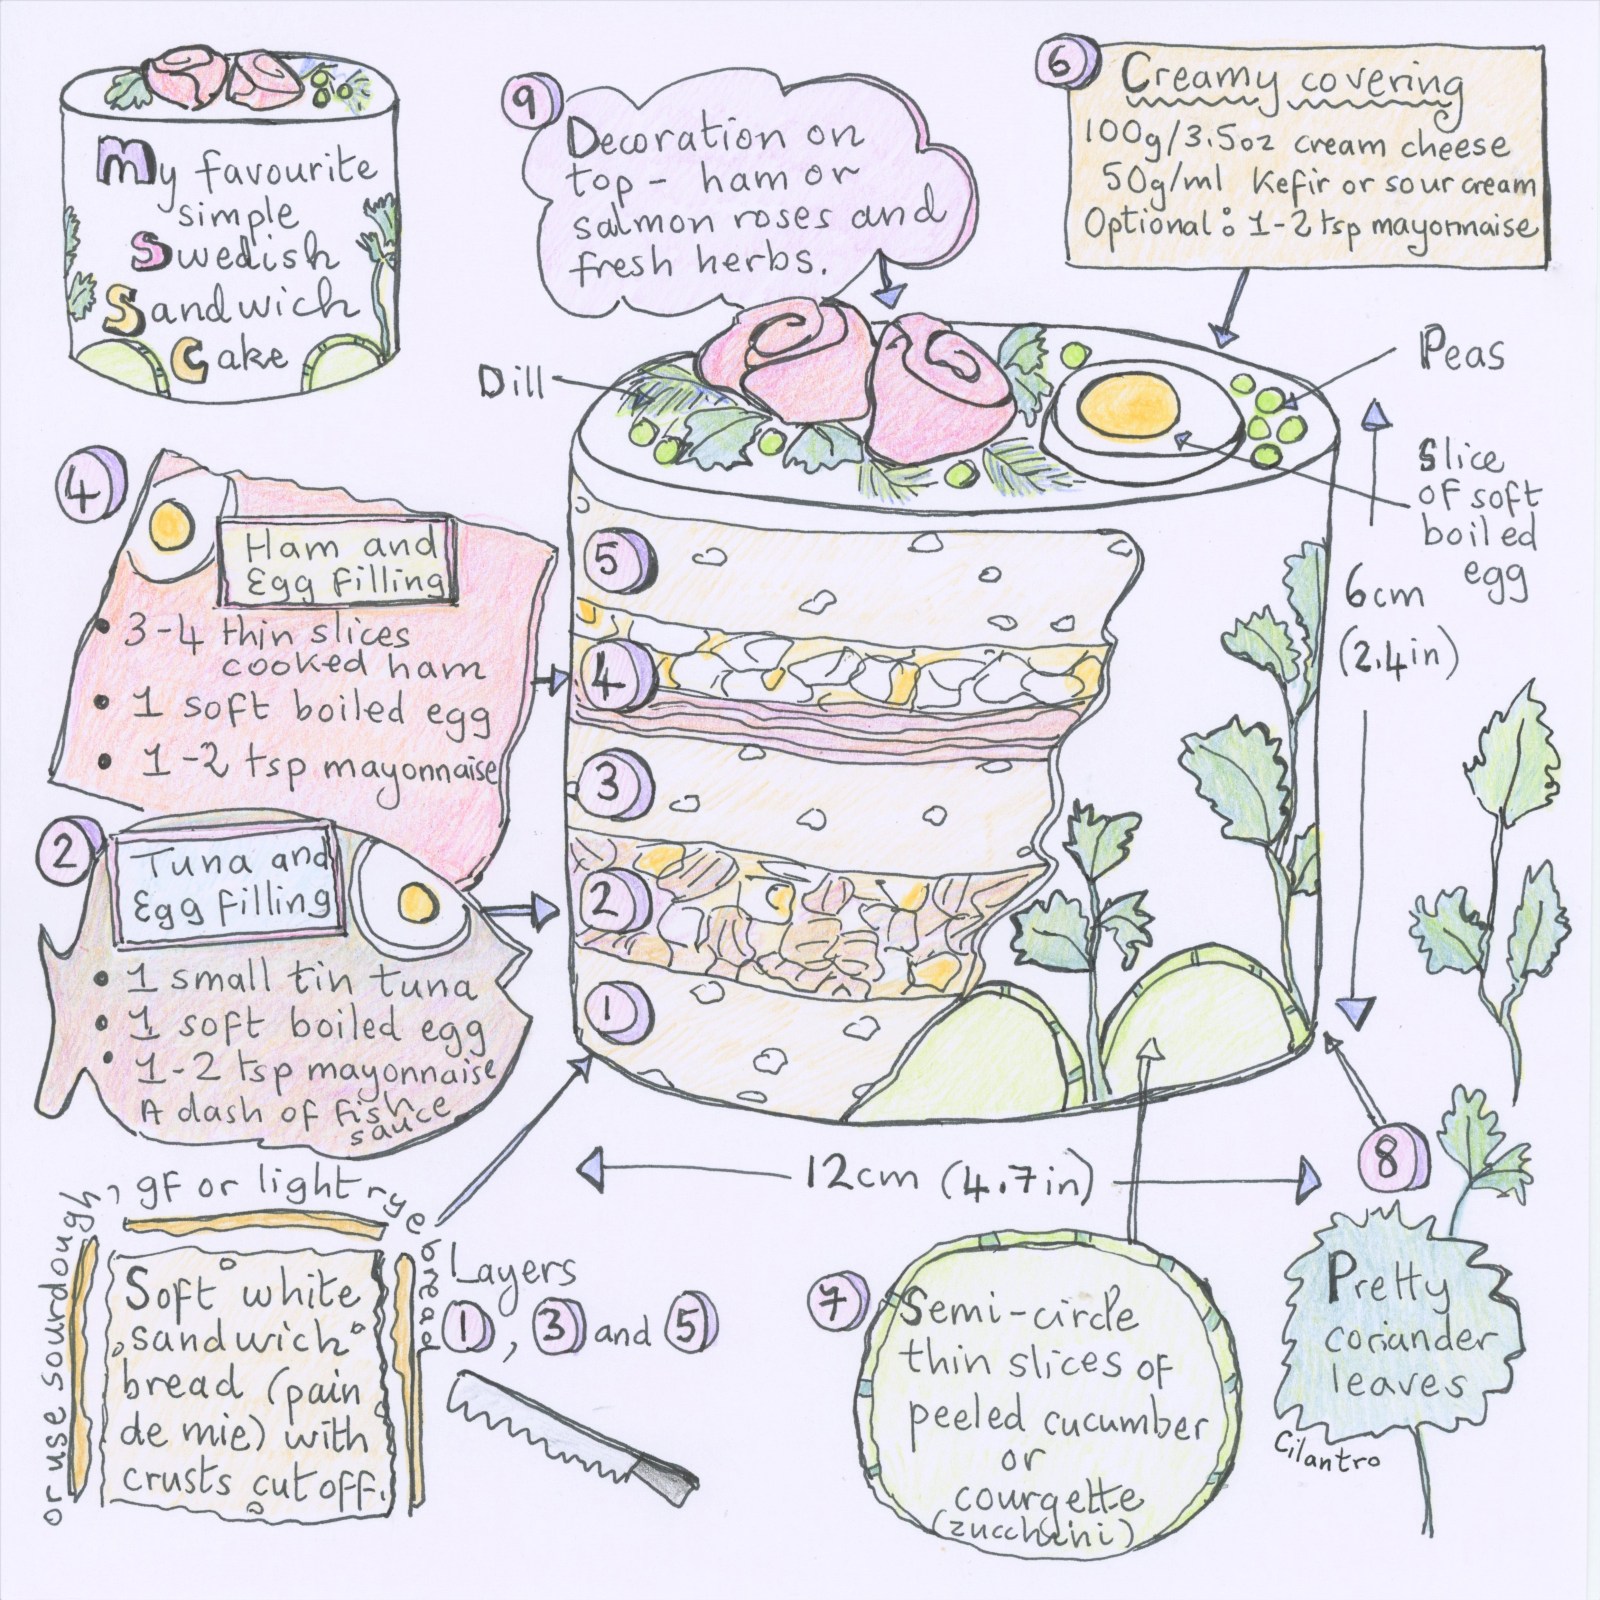 My favourite
simple
Swedish
Sandwich
Cake
9
Decoration on
top - ham or
salmon roses and
fresh herbs.
6
Creamy covering
100g/3.5oz cream cheese
50g/ml Kefir or sour cream
Optional: 1-2 tsp mayonnaise
Dill
Peas
Slice
of soft
boiled
egg
6cm
(2.4in)
4
Ham and
Egg filling
• 3-4 thin slices
cooked ham
• 1 soft boiled egg
• 1-2 tsp mayonnaise
2
Tuna and
Egg filling
• 1 small tin tuna
• 1 soft boiled egg
• 1-2 tsp mayonnaise
A dash of fish
sauce
5
4
3
2
1
12cm (4.7in)
or use sourdough, gf or light rye bread
Soft white
„sandwich"
bread (pain
de mie) with
crusts cut off.
Layers
1, 3 and 5
7
Semi-circle
thin slices of
peeled cucumber
or
courgette
(zucchini)
8
Pretty
coriander
leaves
Cilantro